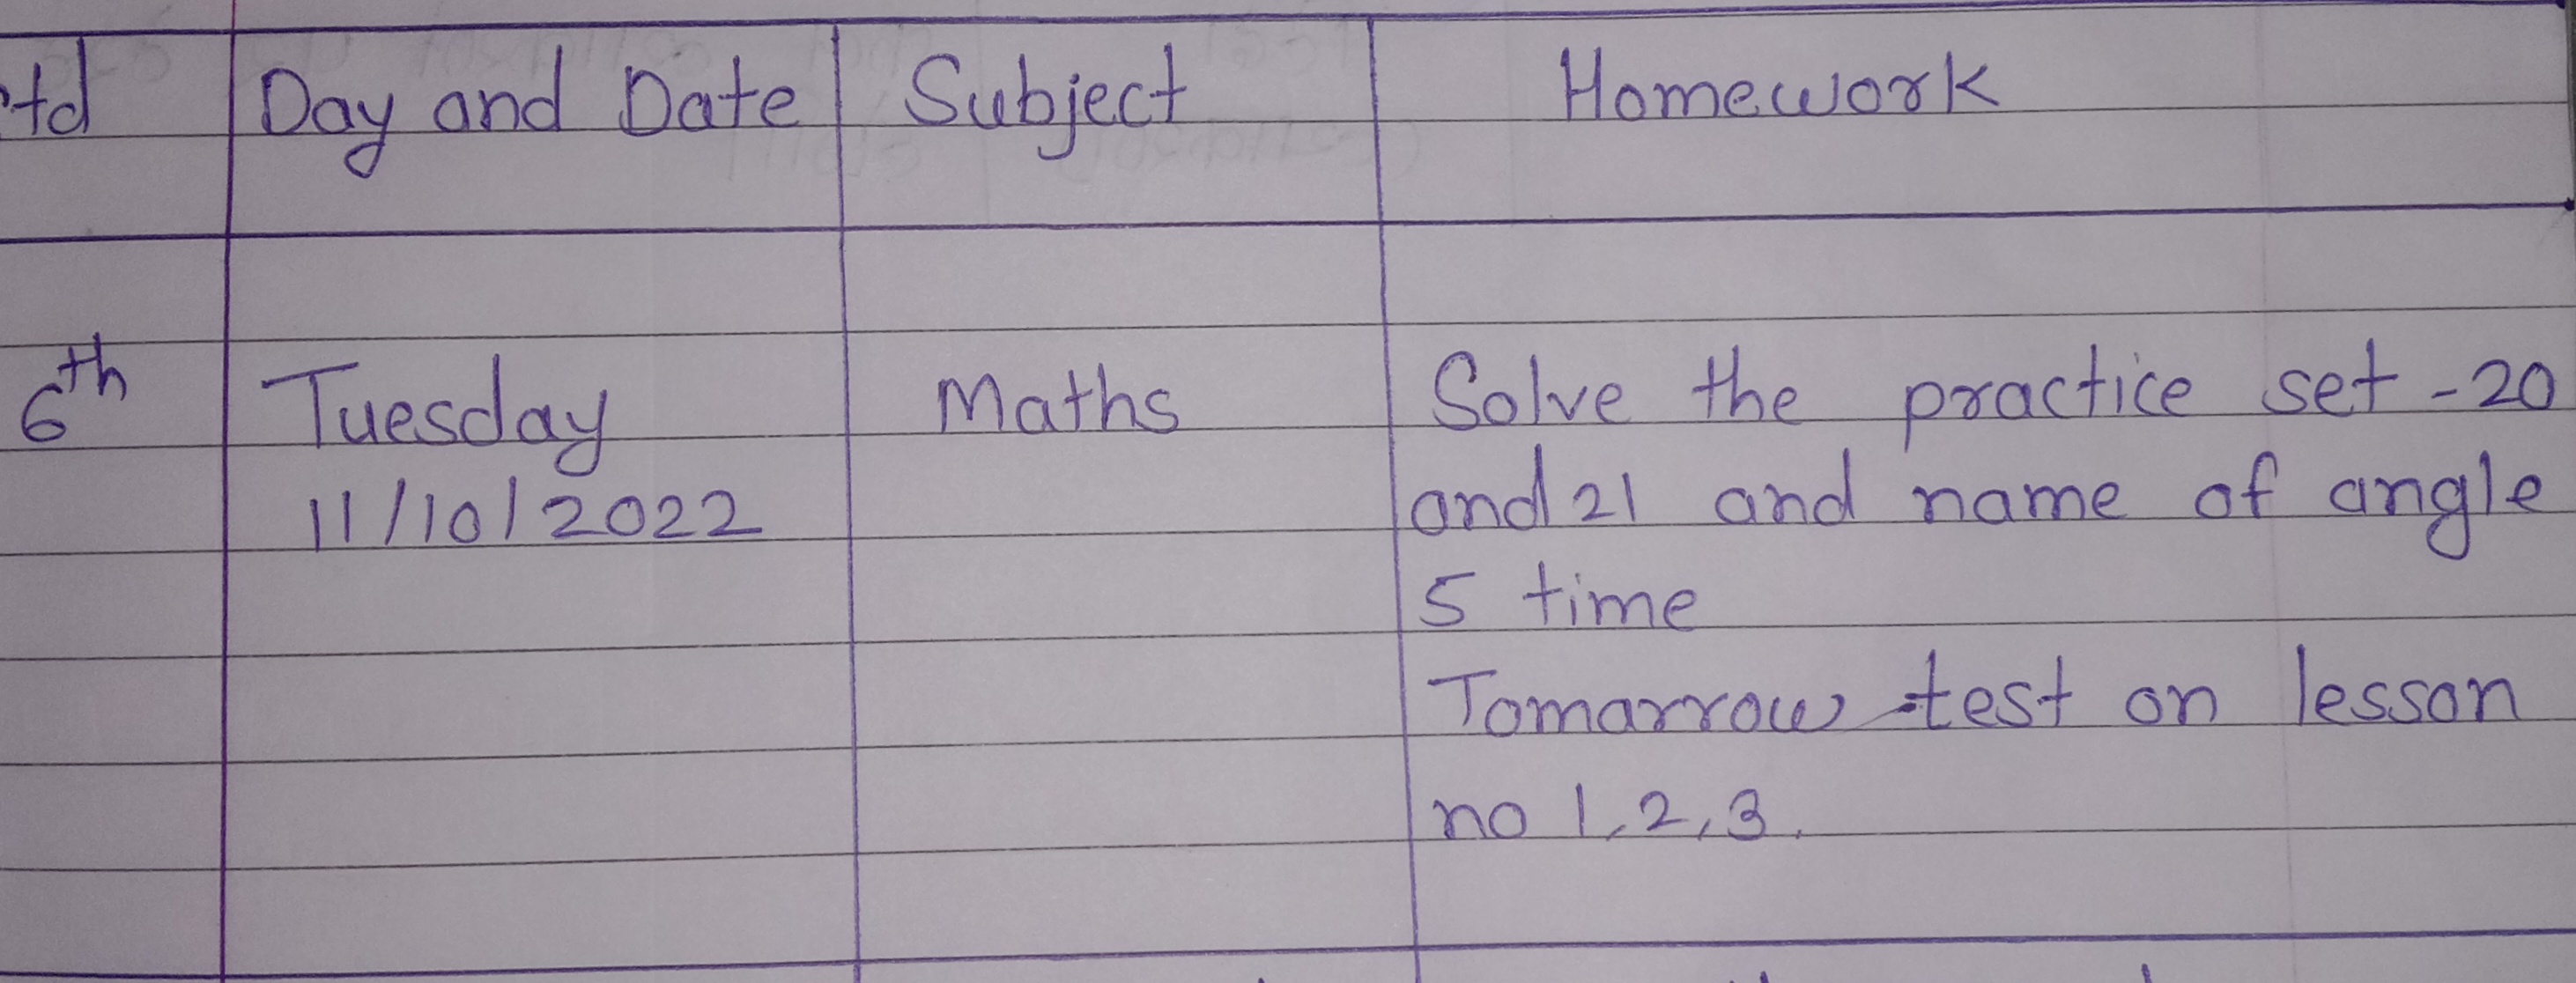 td Day and Date Subject Homework
6th Tuesday Maths Solve the practice set - 20
11/10/2022 and 21 and name of angle
5 time
Tomarrow test on lesson
no 1, 2, 3.